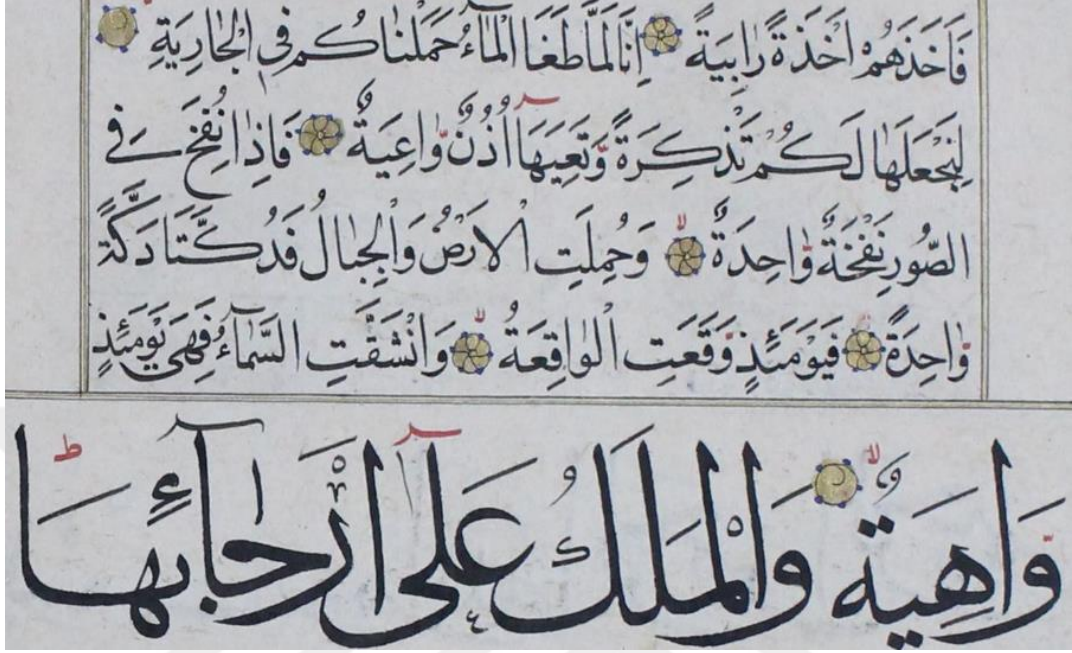 فَاَخَذَهُمْ اَخْذَةً رَابِيَةً ۝ اِنَّا لَمَّا طَغَا الْمَاۤءُ حَمَلْنَاكُمْ فِي الْجَارِيَةِ ۝
لِنَجْعَلَهَا لَكُمْ تَذْكِرَةً وَّتَعِيَهَاۤ اُذُنٌ وَّاعِيَةٌ ۝ فَاِذَا نُفِخَ فِي
الصُّورِ نَفْخَةٌ وَّاحِدَةٌ ۝ وَحُمِلَتِ الْاَرْضُ وَالْجِبَالُ فَدُكَّتَا دَكَّةً
وَّاحِدَةً ۝ فَيَوْمَئِذٍ وَّقَعَتِ الْوَاقِعَةُ ۝ وَانْشَقَّتِ السَّمَاۤءُ فَهِيَ يَوْمَئِذٍ
وَّاهِيَةٌ ۝ وَالْمَلَكُ عَلٰۤى اَرْجَاۤئِهَا ط